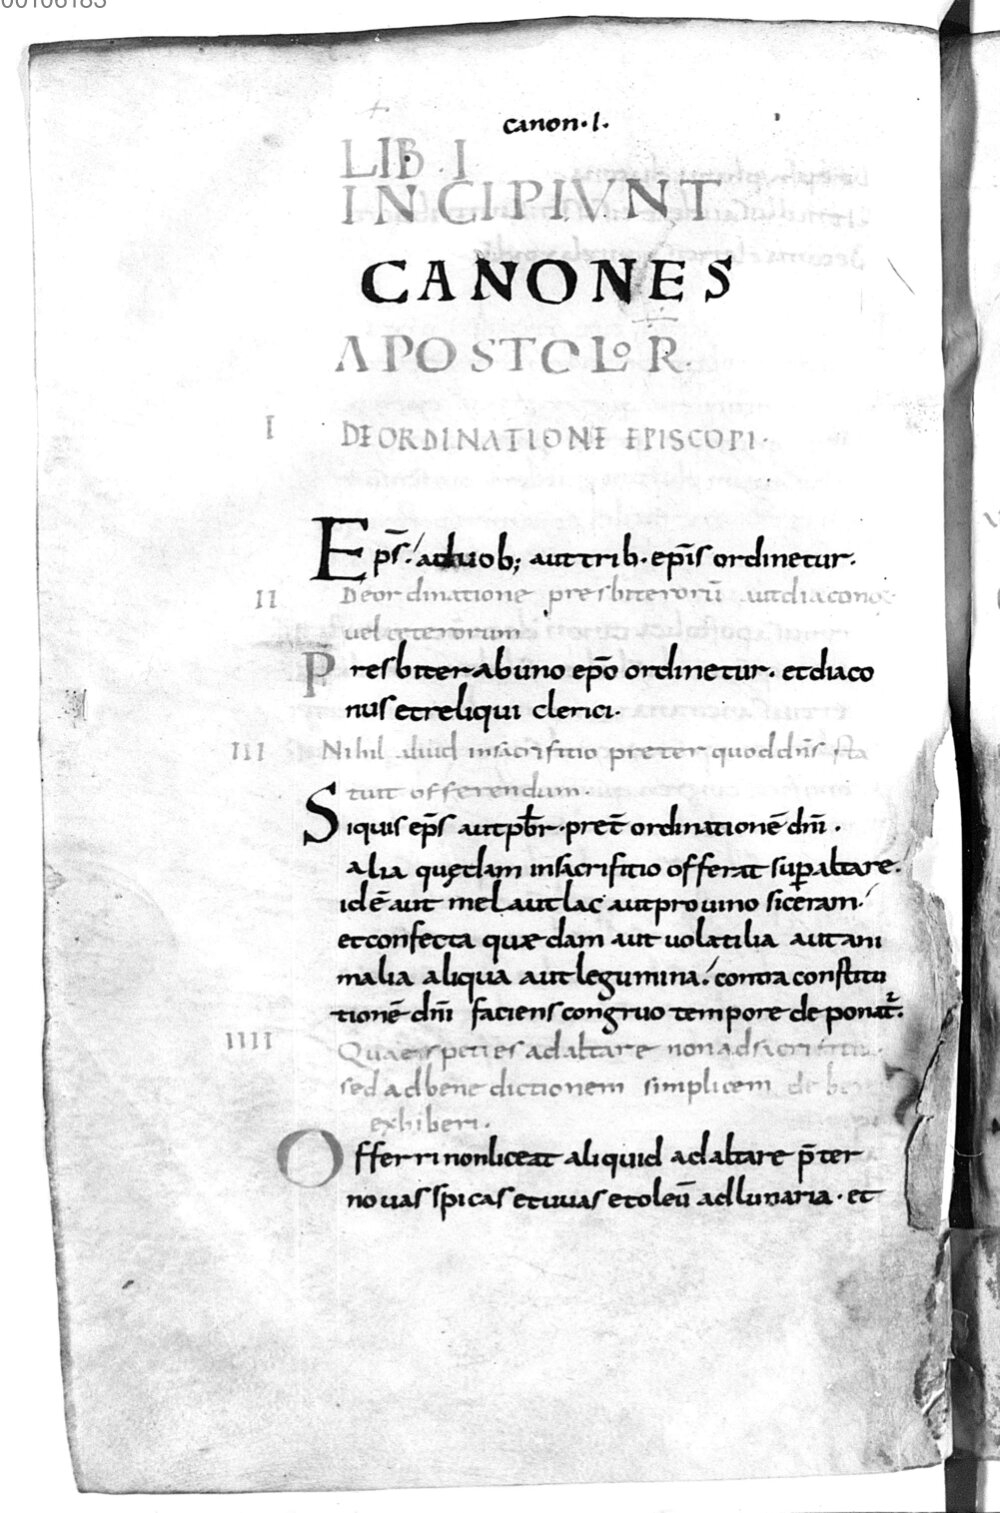 00106183
canon·l·
LIB·I
INCIPIVNT
CANONES
APOSTOLoR̄·
I DE ORDINATIONE EPISCOPI·
Ep̄s· a duob; aut trib· ep̄is ordinetur·
II De ordinatione presbiterorū aut diacono
uel ceterorum
P̄resbiter ab uno ep̄o ordinetur· et diaco
nus et reliqui clerici·
III Nihil aliud in sacrificio preter quod dn̄s sta
tuit offerendum·
Siquis ep̄s aut pb̄r· pret̄ ordinationē dn̄i·
alia quędam in sacrifitio offerat sup altare·
id ē aut mel aut lac aut pro uino siceram·
et confecta quædam aut uolatilia aut ani
malia aliqua aut legumina· contra constitu
tionē dn̄i faciens congruo tempore deponat᷑·
IIII Quae species ad altare non ad sacrifitiu
sed ad benedictionem simplicem de
exhiberi·
Offerri non liceat aliquid ad altare p̄ter
nouas spicas et uuas et oleū ad lunaria· et